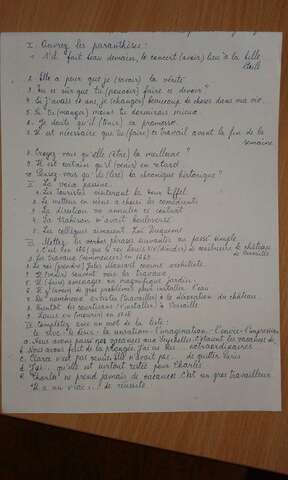 I. Ouvrez les paranthèses :
1. S'il fait beau demain, le concert (avoir) lieu à la belle
étoile
2. Elle a peur que je (savoir) la vérité.
3. Tu es sûr que tu (pouvoir) faire ce devoir?
4. Si j'avais 18 ans, je (changer) beaucoup de choses dans ma vie.
5. Si tu (manger) moins tu dormirais mieux.
6. Je doute qu'il (tenir) sa promesse.
7. Il est nécessaire que tu (faire) ce travail avant la fin de la
semaine.
8. Croyez-vous qu'elle (être) la meilleure?
9. Il est certain qu'il (venir) en retard.
10. Pensez-vous qu'ils (lire) la chronique historique?
II. La voix passive.
1. Les touristes visiteront la tour Eiffel.
2. Le metteur en scène a choisi les
3. La direction va annuler ce contrat.
4. La trahison m'avait bouleversé.
5. Les collègues aimaient Luc Duquenne.
III. Mettez les verbes suivants au passé simple.
1. C'est en 1661 que le roi Louis XIV (décider) de construire le château
de Versailles
2. Les travaux (commencer) en
3. Le roi (prendre) Jules Mansart comme architecte.
4. Il (venir) souvent voir les travaux.
5. Il (faire) aménager un magnifique jardin.
6. Il y (avoir) de gros problèmes pour installer l'eau.
7. De nombreux artistes (travailler) à la décoration du château.
8. Bientôt les courtisans (s'installer) à Versailles.
9. Louis XIV (mourir) en 1715.
IV. Complétez avec un mot de la liste:
le truc, le désir, la sensation, l'imagination, l'envie, l'impression
a. Nous avons passé nos vacances aux Seychelles. C'étaient les vacances de
b. Nous avons fait de la plongée. J'ai eu des ... extraordinaires.
c. Claire n'est pas venue. Elle n'avait pas ... de quitter Paris.
d. J'ai ... qu'elle est surtout restée pour Charles.
e. Charles ne prend jamais de vacances. C'est un gros travailleur.
Il a un vrai ... de réussite.